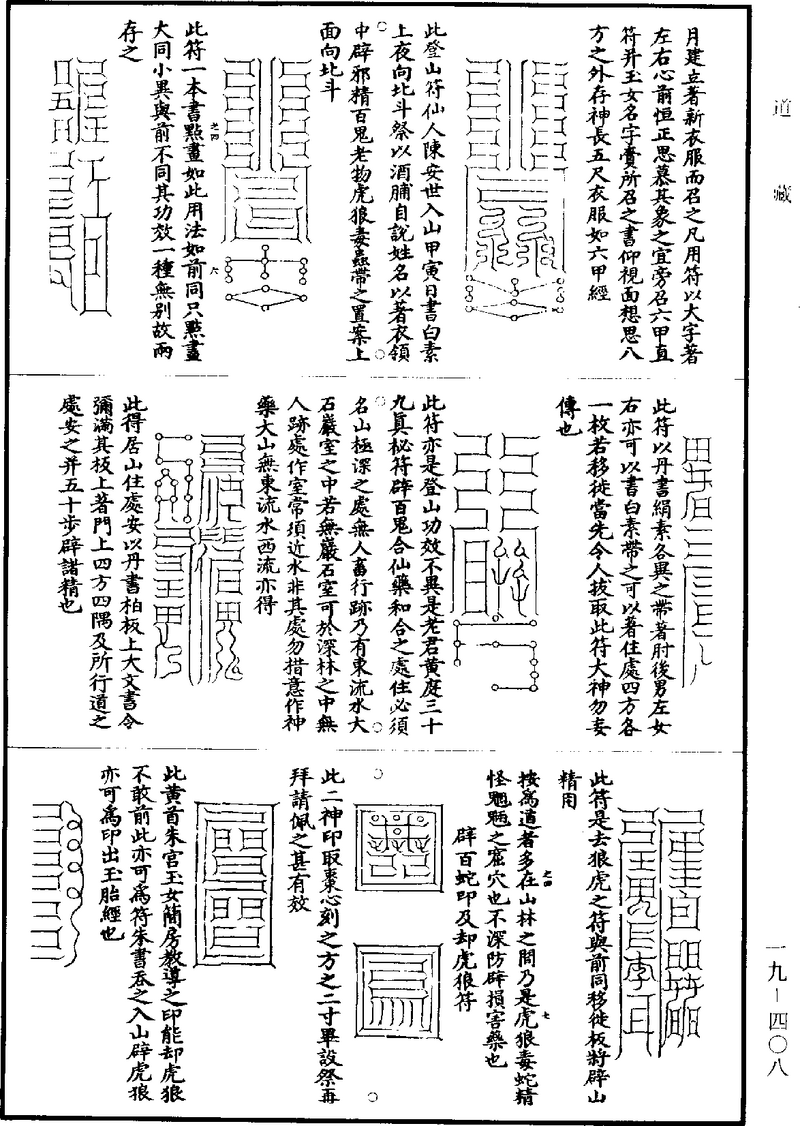 道藏
月建立著新衣服而召之凡用符以大字著
左右心前恒正思慕其象之宜旁召六甲直
符并玉女名字賫所召之書仰視面想思八
方之外存神長五尺衣服如六甲經
此登山符仙人陳安世入山甲寅日書白素
上夜向北斗祭以酒脯自說姓名以著衣領
中辟邪精百鬼老物虎狼毒蟲帶之置案上
面向北斗
之四
六
此符一本書點畫如此用法如前同只點畫
大同小異與前不同其功效一種無别故兩
存之
此符以丹書絹素各異之帶著肘後男左女
右亦可以書白素帶之可以著住處四方各
一枚若移徙當先令人拔取此符大神勿妄
傳也
此符亦是登山功效不異是老君黄庭三十
九真秘符辟百鬼合仙藥和合之處住必須
名山極深之處無人畜行跡乃有東流水大
石巖室之中若無巖石室可於深林之中無
人跡處作室常須近水非其處勿措意作神
藥大山無東流水西流亦得
此得居山住處安以丹書柏板上大文書令
彌滿其板上著門上四方四隅及所行道之
處安之并五十步辟諸精也
此符是去狼虎之符與前同移徙板將辟山
精用
之四
七
按爲道者多在山林之間乃是虎狼毒蛇精
怪魍魎之窟穴也不深防辟損害藥也
辟百蛇印及却虎狼符
此二神印取棗心刻之方之二寸畢設祭再
拜請佩之甚有效
此黄首朱宫玉女簡房教導之印能却虎狼
不敢前此亦可爲符朱書吞之入山辟虎狼
亦可爲印出玉胎經也
一九－四〇八